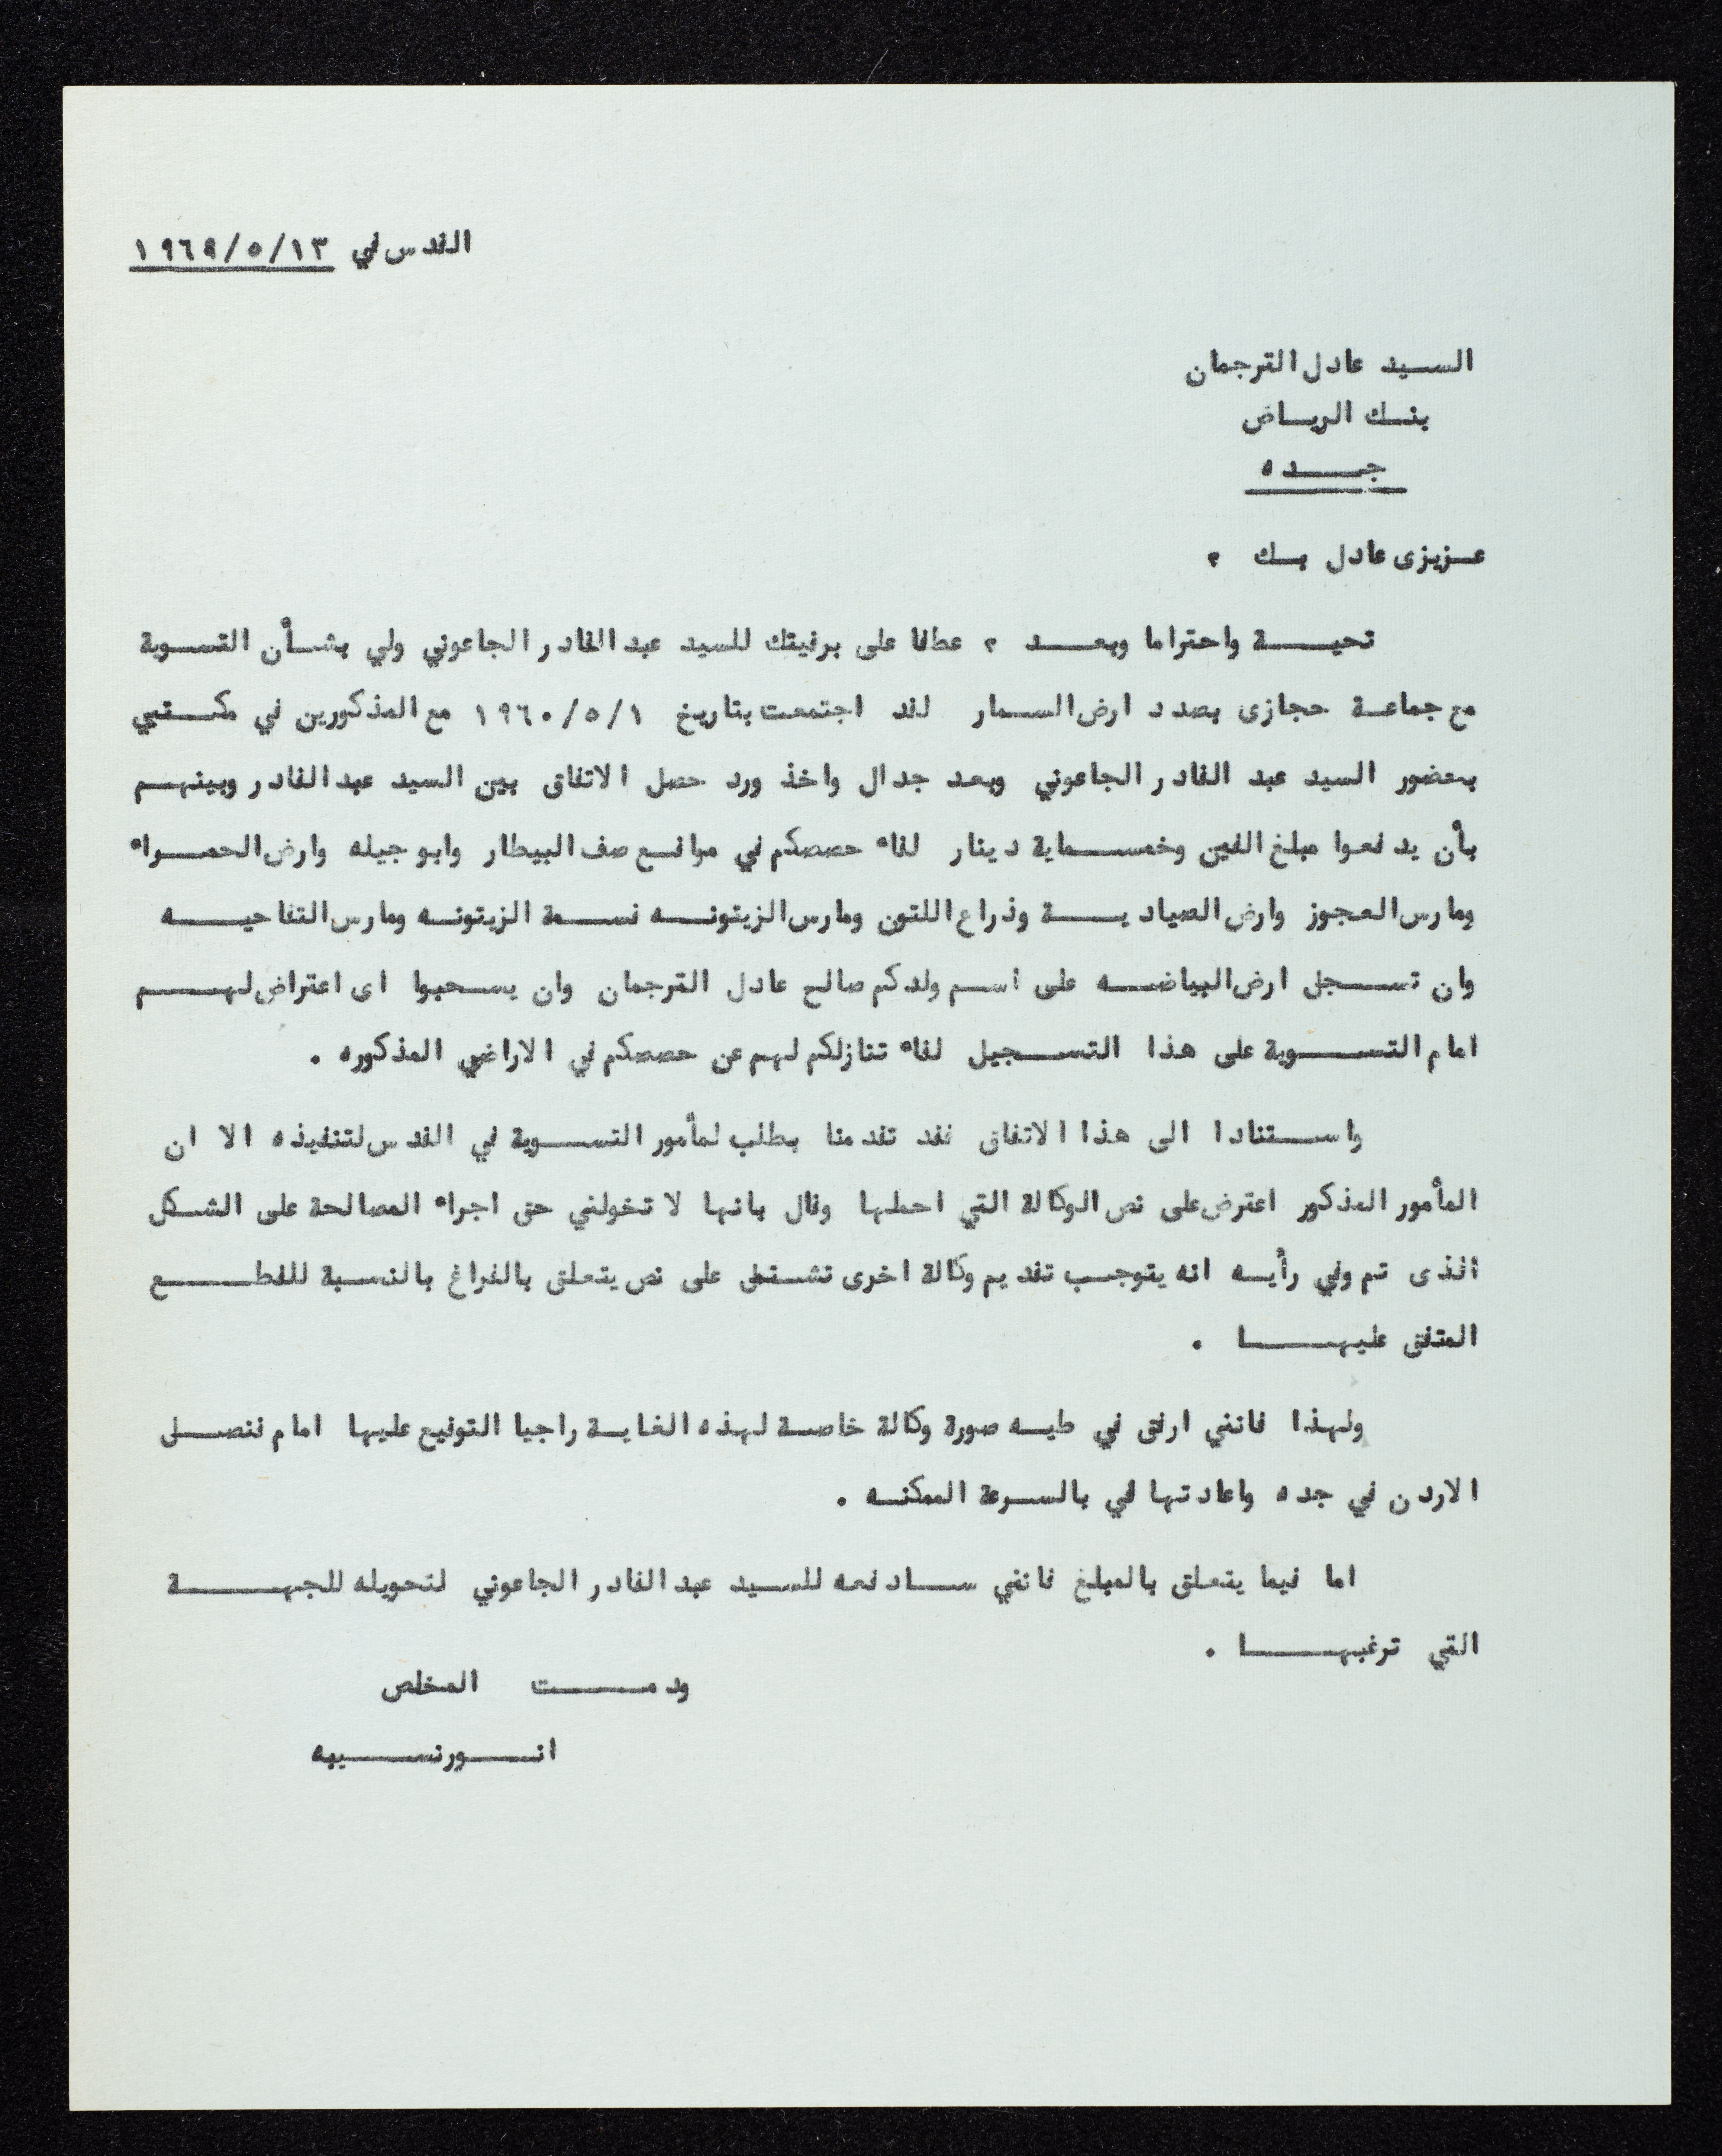 القدس في ١٩٦٩/٥/١٣
السيد عادل الترجمان
بنك الرياض
جده
عزيزى عادل بك ،
تحية واحتراما وبعد ، عطفا على برقيتك للسيد عبد القادر الجاعوني ولي بشأن التسوية
مع جماعة حجازى بصدد ارض السمار لقد اجتمعت بتاريخ ١٩٦٠/٥/١ مع المذكورين في مكتبي
بحضور السيد عبد القادر الجاعوني وبعد جدال واخذ ورد حصل الاتفاق بين السيد عبد القادر وبينهم
بأن يدفعوا مبلغ الفين وخمسماية دينار لقاء حصصكم في مواقع صف البيطار وابو جيله وارض الحمراء
ومارس العجوز وارض الصيادية وذراع اللتون ومارس الزيتونه نسمة الزيتونه ومارس التفاحيه
وان تسجل ارض البياضه على اسم ولدكم صالح عادل الترجمان وان يسحبوا اى اعتراض لهم
امام التسوية على هذا التسجيل لقاء تنازلكم لهم عن حصصكم في الاراضي المذكوره .
واستنادا الى هذا الاتفاق فقد تقدمنا بطلب لمأمور التسوية في القدس لتنفيذه الا ان
المأمور المذكور اعترض على نص الوكالة التي احملها وقال بانها لا تخولني حق اجراء المصالحة على الشكل
الذى تم وفي رأيه انه يتوجب تقديم وكالة اخرى تشتمل على نص يتعلق بالفراغ بالنسبة للقطع
المتفق عليها .
ولهذا فانني ارفق في طيه صورة وكالة خاصة لهذه الغاية راجيا التوقيع عليها امام قنصل
الاردن في جده واعادتها لي بالسرعة الممكنه .
اما فيما يتعلق بالمبلغ فانني سادفعه للسيد عبد القادر الجاعوني لتحويله للجهة
التي ترغبها .
ودمت المخلص
انور نسيبه